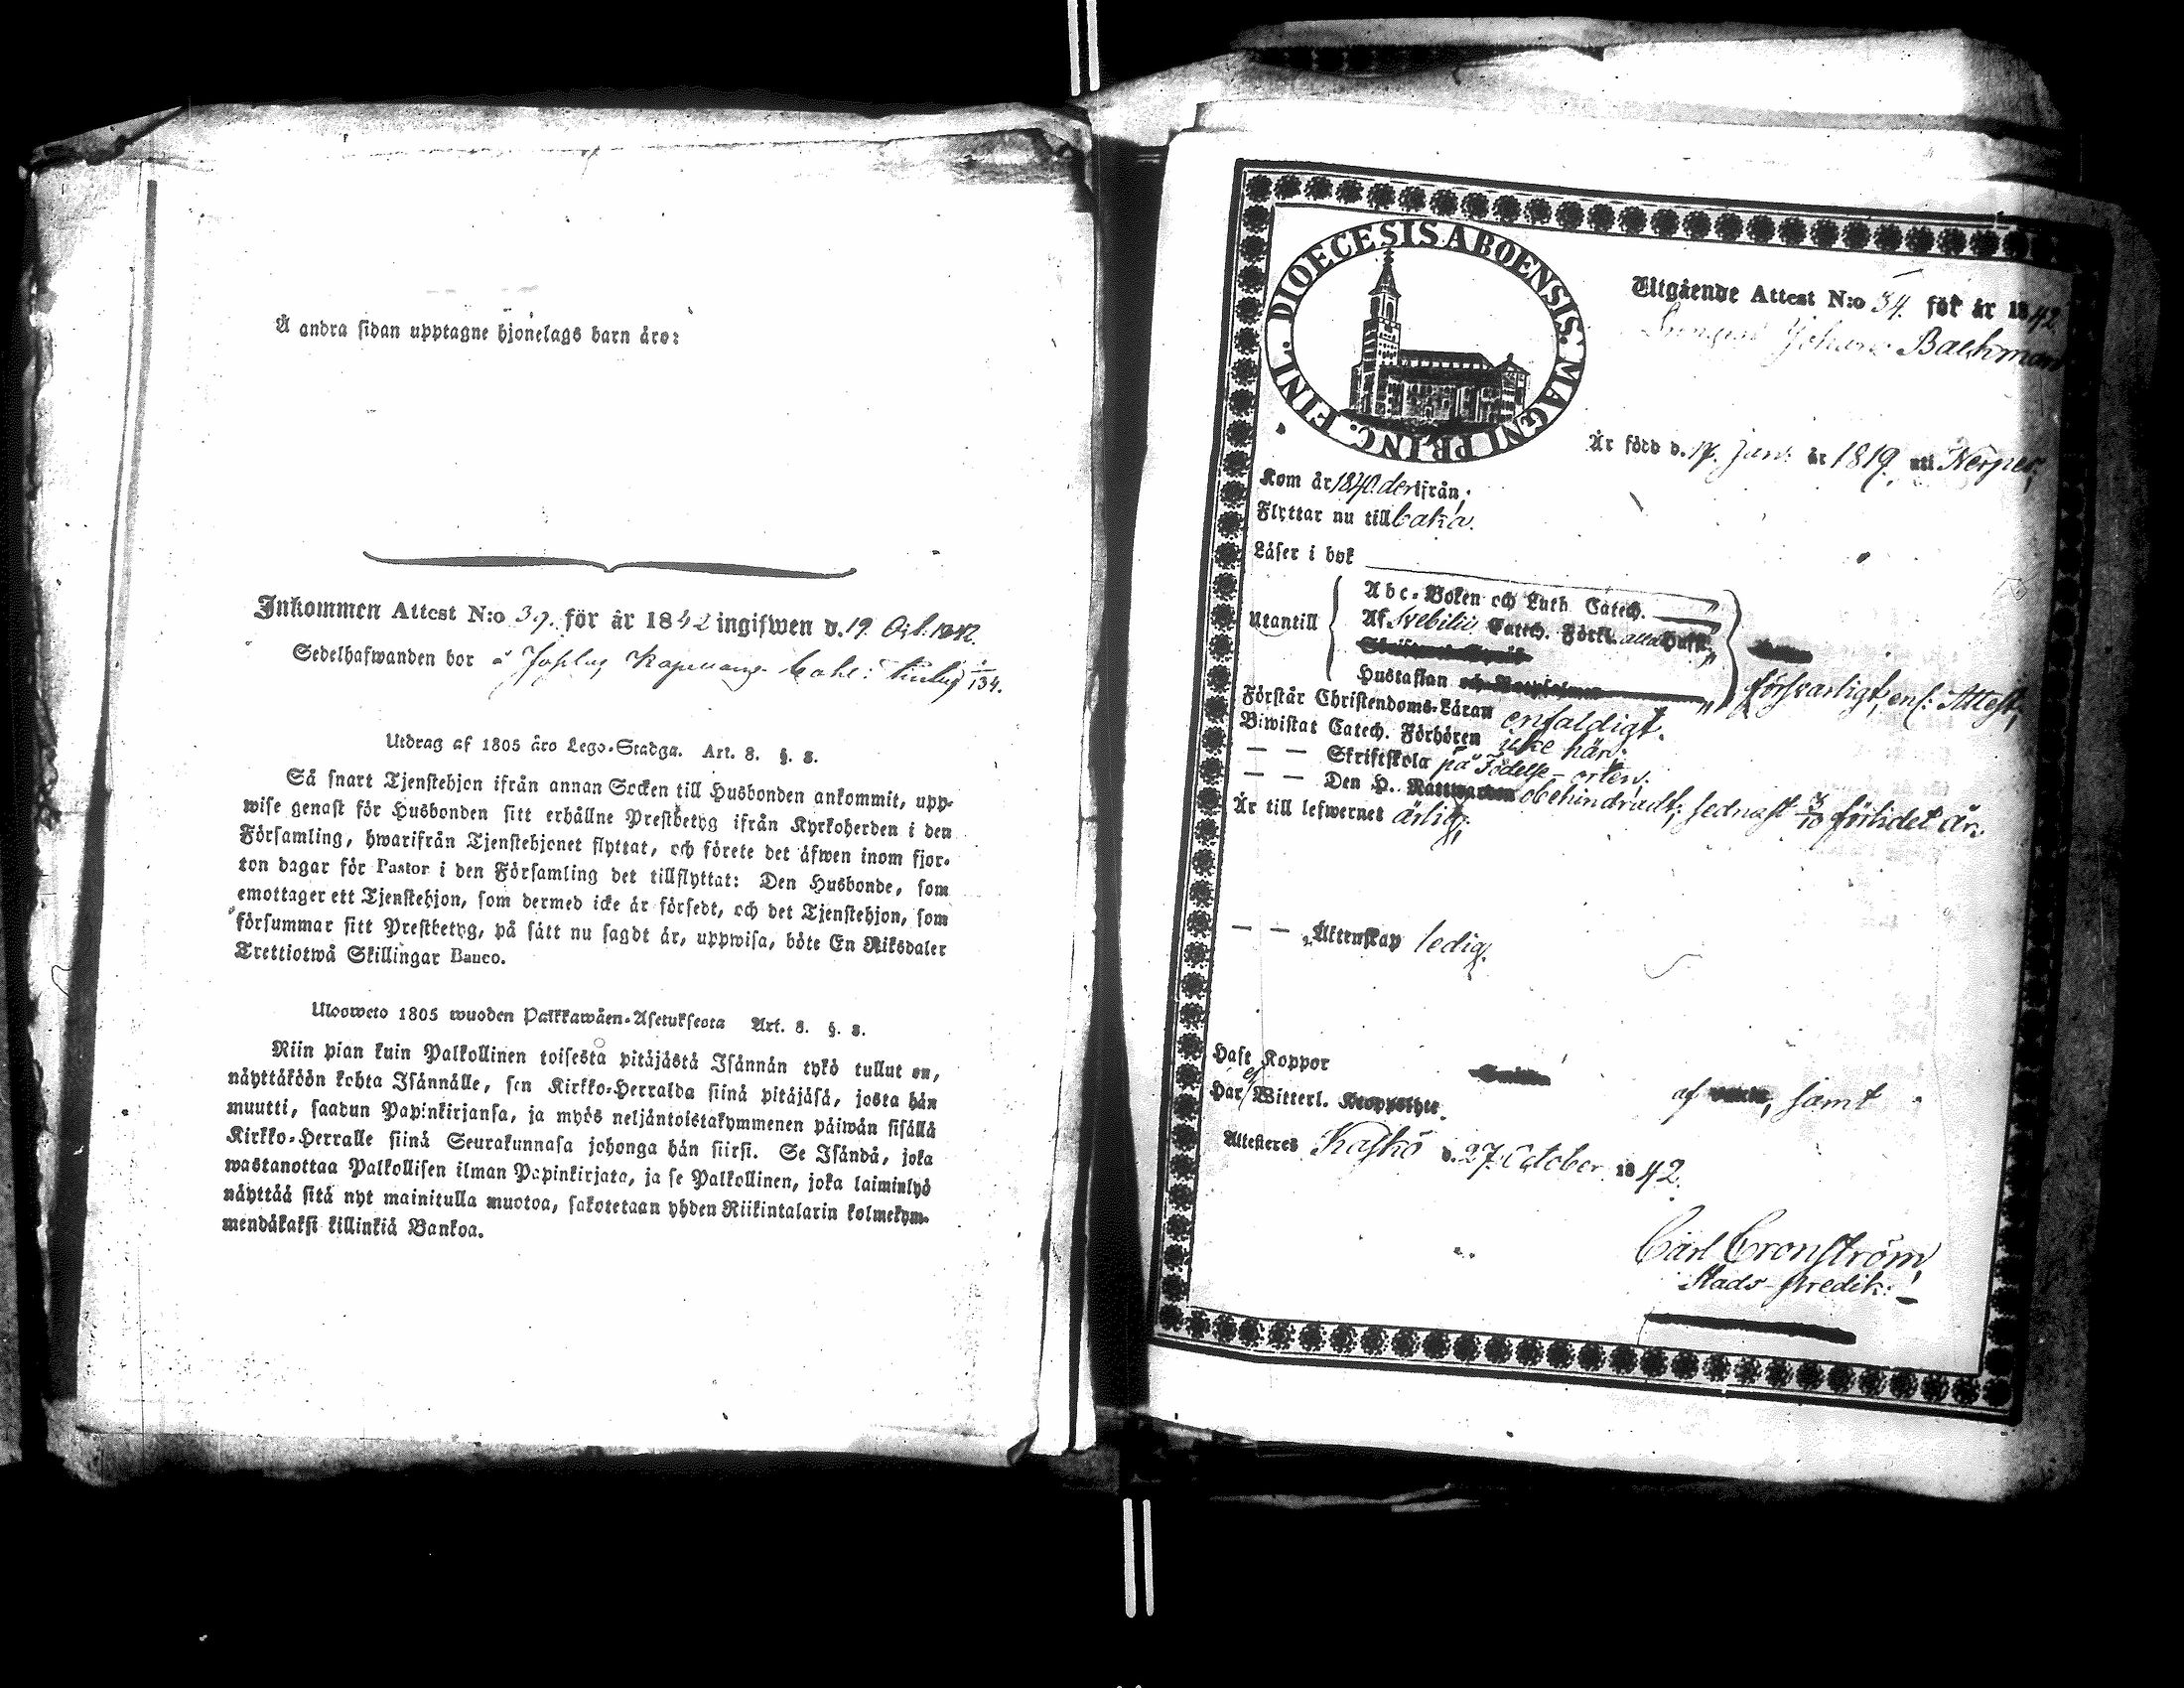 Å andra sidan upptagne hjonelags barn äro:
Inkommen Attest N:o 39. för år 1842 ingifwen d. 19. Oct. 1842.
Sedelhafwanden bor å
134.
Utdrag af 1805 års Lego-Stadga. Art. 8. §. 8.
Så snart Tjenstehjon ifrån annan Socken till Husbonden ankommit, upp-
wise genast för Husbonden sitt erhållne Prestbetyg ifrån Kyrkoherden i den
Församling, hwarifrån Tjenstehjonet flyttat, och förete det äfwen inom fjor-
ton dagar för Pastor i den Församling det tillflyttat: Den Husbonde, som
emottager ett Tjenstehjon, som dermed icke är försedt, och det Tjenstehjon, som
försummar sitt Prestbetyg, på sätt nu sagdt är, uppwisa, böte En Riksdaler
Trettiotwå Skillingar Banco.
Ulosweto 1805 wuoden Palkkawäen-Asetuksesta Art. 8. §. 8.
Niin pian kuin Palkollinen toisesta pitäjästä Isännän tykö tullut on,
näyttäköön kohta Isännälle, sen Kirkko-Herralda siinä pitäjäsä, josta hän
muutti, saadun Papinkirjansa, ja myös neljäntoistakymmenen päiwän sisällä
Kirkko-Herralle siinä Seurakunnasa johonga hän siirsi. Se Isändä, joka
wastanottaa Palkollisen ilman Papinkirjata, ja se Palkollinen, joka laiminlyö
näyttää sitä nyt mainitulla muotoa, sakotetaan yhden Riikintalarin kolmekym-
mendäkaksi killinkiä Bankoa.
DIOECESIS ABOENSIS. MAGNI PRINC. FINL.
Utgående Attest N:o 34. för år 1842
Johan Backman
Är född d. 17. Jan. år 1819. uti Nerpes,
Kom år 1840. derifrån;
Flyttar nu tillbaka.
Läser i bok
Utantill
Abc-Boken och Luth. Catech. "
Af Svebilii Catech. Förkl. alla Hufst. "
Hustaflan "
försvarligt, enl. Attest,
Förstår Christendoms-Läran enfaldigt.
Biwistat Catech. Förhören icke här;
— — Skriftskola på Födelse-orten;
— — Den H. Nattwarden obehindradt; sednast 3/10 förlidet år.
Är till lefwernet ärlig;
— — Äktenskap ledig.
Haft Koppor
Har ej Witterl.
af, samt
Attesteres Kaskö d. 27. October 1842.
Carl Cronström
Stads-predik: